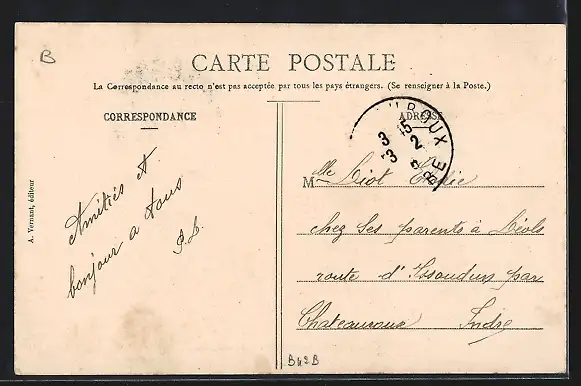 B
CARTE POSTALE
La Correspondance au recto n'est pas acceptée par tous les pays étrangers. (Se renseigner à la Poste.)
CORRESPONDANCE
ADRESSE
A. Vernant, éditeur
Amitiés et
bonjour a tous
P. L.
UROUX
3 15
3 2
RE
Mlle Liot Elodie
chez ses parents à Déols
route d'Issoudun par
Chateauroux Indre
B42B